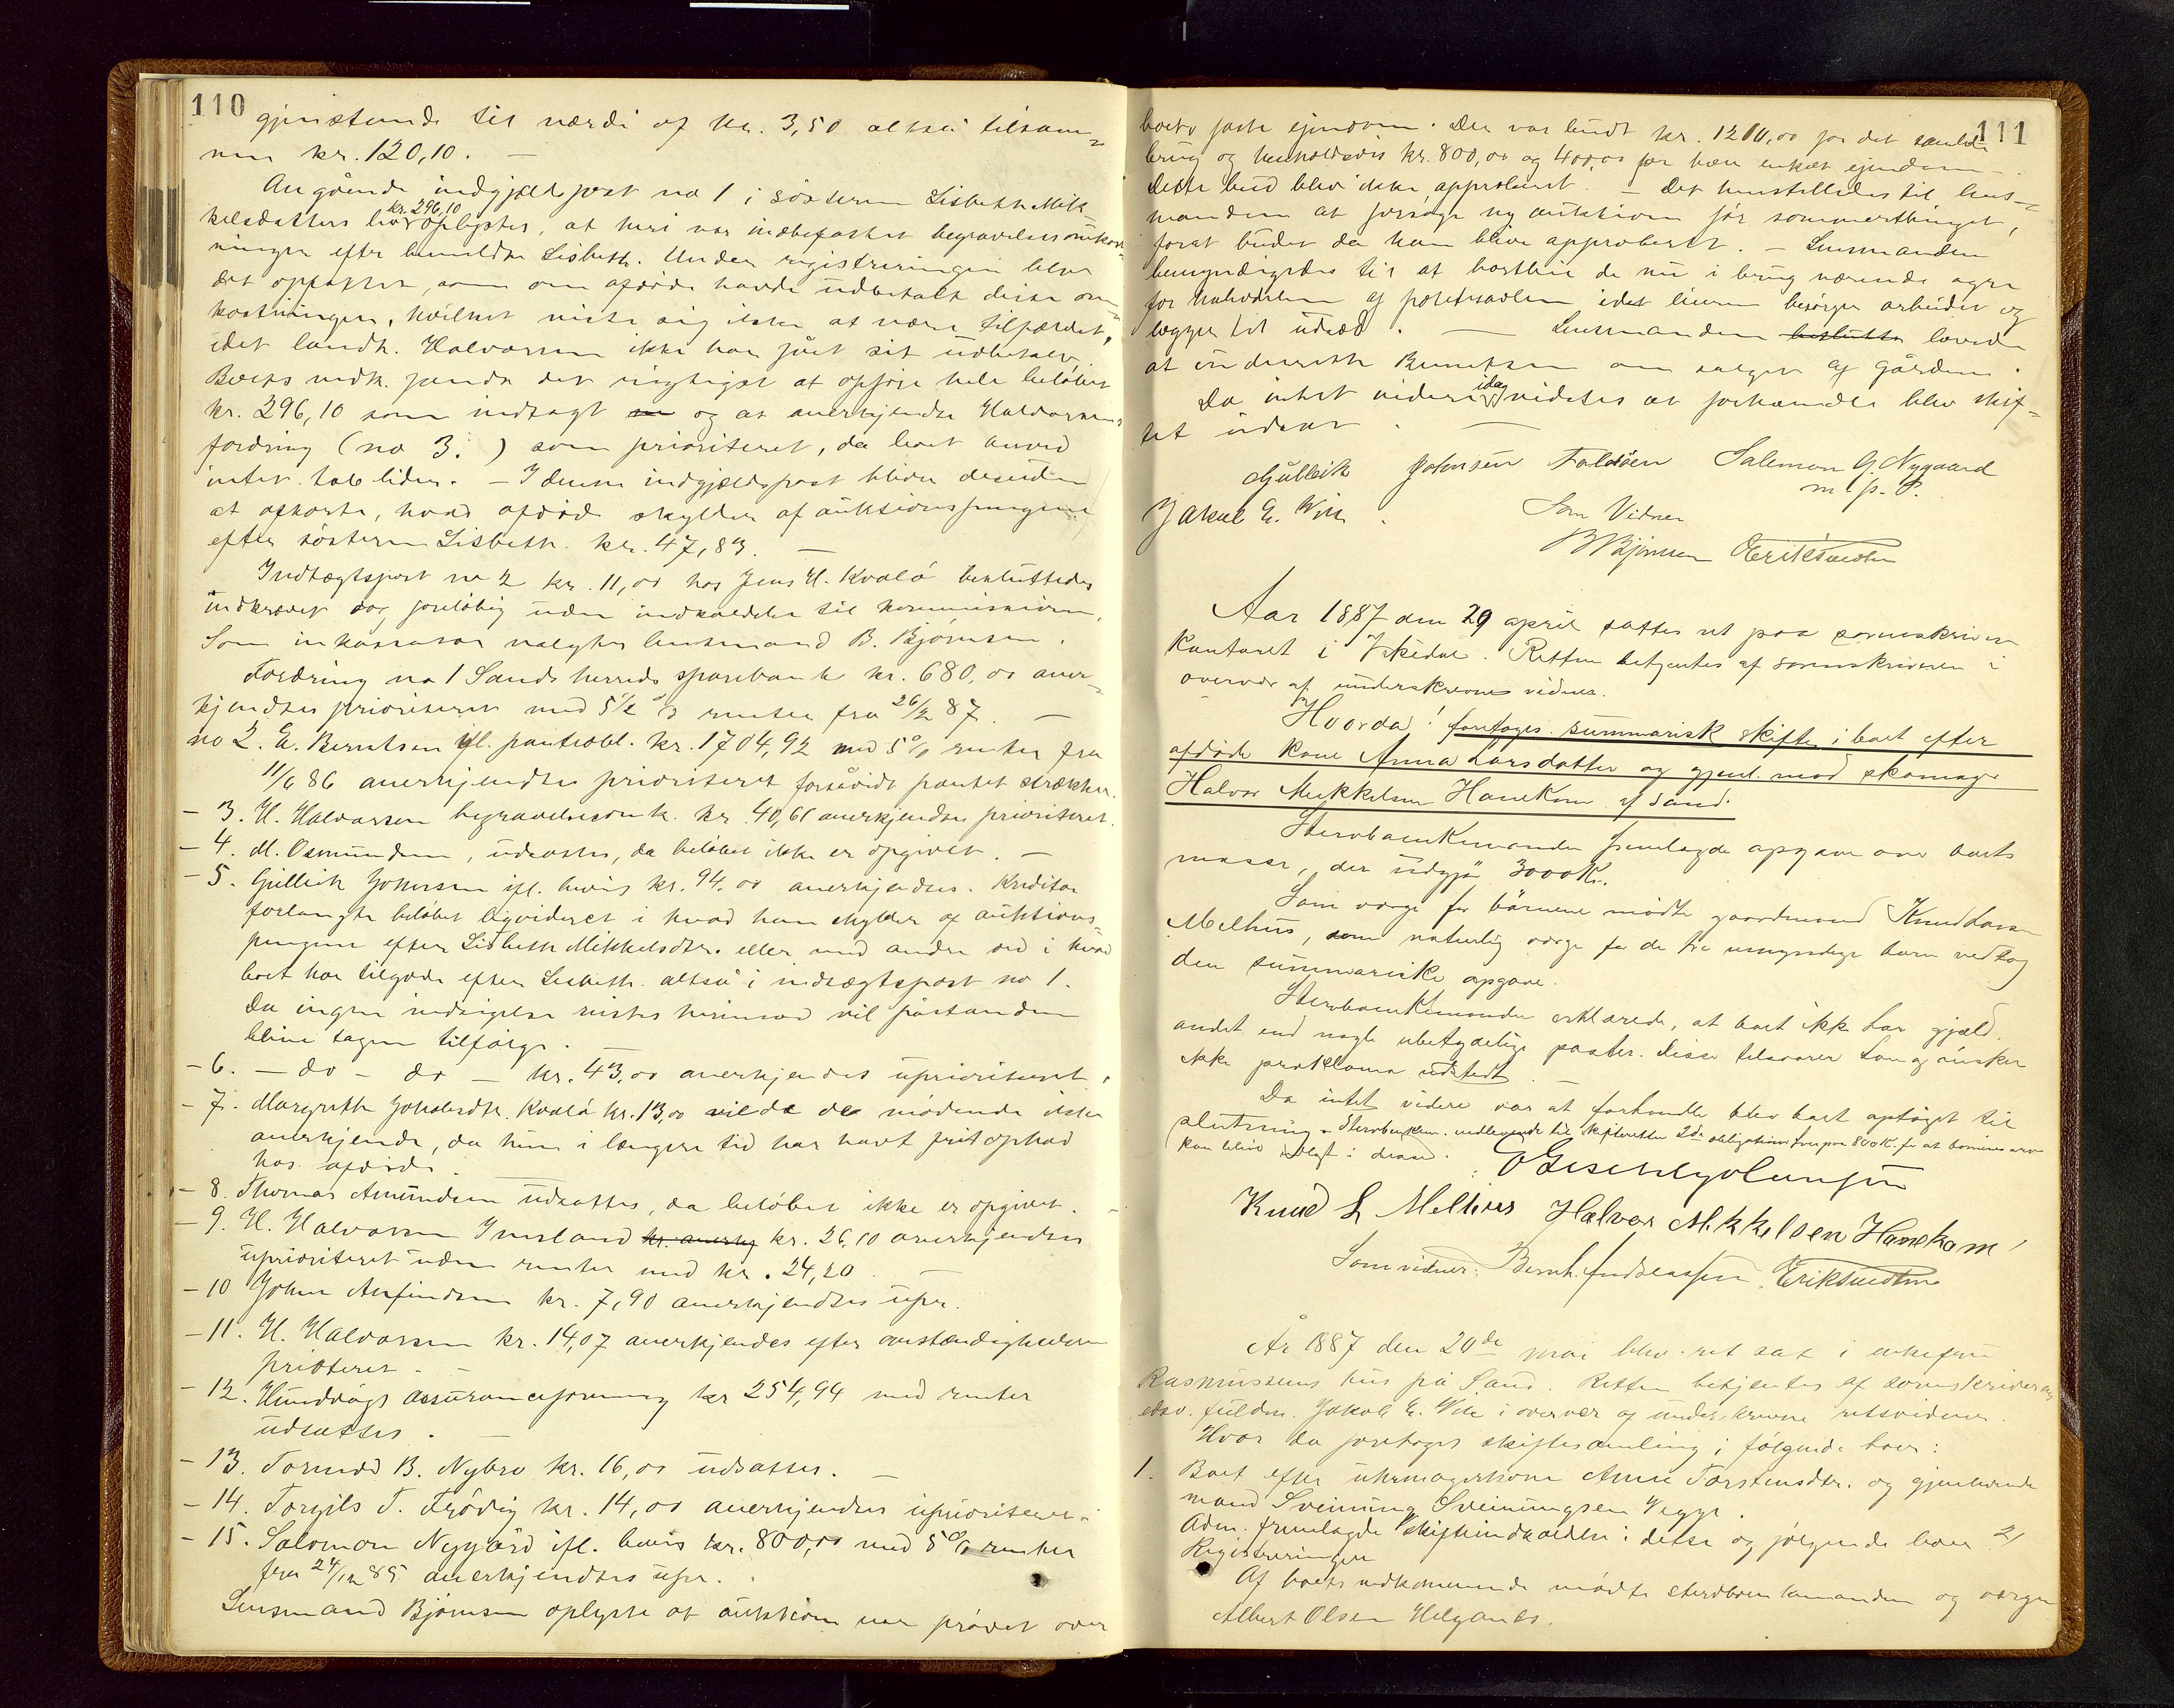 110
gjenstande til værdi af kr. 3,50 altså tilsam=
men kr. 120,10. —
Angående indgjældspost no 1 i søsteren Lisbeth Mik-
kelsdatters bo kr. 296,10 oplystes, at heri var indbefattet begravelsesomkost-
ninger efter bemeldte Lisbeth. Under registreringen blev
det opfattet, som om afdøde havde udbetalt disse om-
kostninger, hvilket viste sig ikke at være tilfældet,
idet landh. Halvorsen ikke har fået sit udbetalt.
Boets vedk. fandt det rigtigst at opføre hele beløbet
kr. 296,10 som indtægt og at anerkjende Halvorsens
fordring (no 3.) som prioriteret, da boet anved
intet tab lider. — I denne indgjældspost bliver desuden
at afkorte, hvad afdøde skylder af auktionspengene
efter søsteren Lisbeth. kr. 47,83. —
Indtægtspost no 2 kr. 11,00 hos Jens H. Kvalø besluttedes
indkrævet dog foreløbig uden indkaldelse til kommissionen.
Som inkassator valgtes lensmand B. Bjørnsen.
Fordring no 1 Sands herreds sparebank kr. 680,00 aner-
kjendtes prioriteret med 5½ % renter fra 26/2 87. —
no 2. E. Berentsen ifl. panteobl. kr. 1704,92 med 5% renter fra
11/6 86 anerkjendtes prioriteret forsåvidt pantet strækker.
— 3. H. Halvorsen begravelsesomk. kr. 40,61 anerkjendtes prioriteret.
— 4. M. Osmundsen, udsattes, da beløbet ikke er opgivet. —
— 5. Gulleik Johnsen ifl. bevis kr. 94,00 anerkjendtes. Kreditor
forlangte beløbet ligvideret i hvad han skylder af auktions-
pengene efter Lisbeth Mikkelsdtr. eller med andre ord i hvad
boet har tilgode efter Lisbeth altså i indtægtspost no 1.
Da ingen indsigelse vistes herimod vil påstanden
blive tagen tilfølge. —
— 6. — do — do — kr. 43,00 anerkjendes uprioriteret.
— 7. Margrethe Jokobsdtr. Kvalø kr. 13,00 vilde de mødende ikke
anerkjende, da hun i længere tid har havt frit ophold
hos afdøde.
— 8. Thomas Amundsen udsattes, da beløbet ikke er opgivet. —
— 9. H. Halvorsen Imsland kr. anerkj kr. 26,10 anerkjendtes
uprioriteret uden renter med kr. 24,20 —
— 10 John Anfindsen kr. 7,90 anerkjendtes upr.
— 11. H. Halvorsen kr. 14,07 anerkjendes efter omstændighederne
prioteret. —
— 12. Hunddøgs assuranceforening kr 254,94 med renter
udsattes. —
— 13. Tormod B. Nybro kr. 16,00 udsattes. —
— 14. Torgils T. Frødig kr. 14,00 anerkjendtes uprioriteret.
— 15. Salomon Nygård ifl. bevis kr. 800,00 med 5% renter
fra 24/12 85 anerkjendtes upr.
Lensmand Bjørnsen oplyste at auktion var prøvet over
111
boets faste ejendom. Der var budt kr. 1200,00 for det samlede
brug og henholdsvis kr. 800,00 og 400,00 for hver enkelt ejendom —
Dette bud blev ikke approberet. — Det henstilledes til lens-
manden at forsøge ny auktion før sommerthinget,
forat budet da kan blive approberet. — Lensmanden
bemyndigedes til at bortleie de nu i brug værende agre
for halvdelen af poteteavlen idet leieren besørger arbeidet og
lægger til udsæd. — Lensmanden beslutte lovede
at underrette Berentsen om salget af gården.
Da intet videre idag vidstes at forhandle blev skif-
tet udsat. —
Gulleik Johnsen Foldøen Salemon G. Nygaard
m. f. p.
Jakob E. Wiik. Som Vidner
B Bjørnsen O Eriksmoen
Aar 1887 den 29 april sattes ret paa sorenskriver
kontoret i Vikedal. Retten betjentes af sorenskriveren i
overvær af underskrevne vidner.
Hvorda! foretoges summarisk skifte i boet efter
afdøde kone Anna Larsdatter og gjenl. mand skomager
Halvor Mikkelsen Hanekam af Sand.
Stervboenkemanden fremlagde opgave over boets
masse, der udgjør 3000 Kr.
Som værge for børnene mødte gaardmand Knud Larsen
Melhus, som naturlig værge for de tre umyndige børn vedtog
den summariske opgave.
Stervboenkemanden erklærede, at boet ikke har gjæld
andet end nogle ubetydelige poster. Disse tilsvarer han og ønsker
ikke proklama udstedt. —
Da intet videre var at forhandle blev boet optaget til
slutning. Stervboenkem. medleverede til skifteretten 2de obligationer for 800 K. for at børnenes arv
kan blive udlagt i disse.
Knud L Melhus Halvor Mikkelsen Hanekam
Som vidner: Bernh. Andreassen. O Eriksmoen
År 1887 den 20de mai blev ret sat i enkefru
Rasmussens hus på Sand. Retten betjentes af sorenskriverens
edsv. fuldm. Jakob E. Wiik i overvær af underskrevne retsvidner.
Hvor da foretoges skiftesamling i følgende boer:
1. Boet efter uhrmagerkone Anne Torstensdtr. og gjenlevende
mand Sveinung Sveinungsen Vegge.
Adm. fremlagde skifteindkaldelse i dette og følgende boer 2/
Registreringen
Af boets vedkommende mødte stervboenkemanden og værgen
Albert Olsen Helganes.